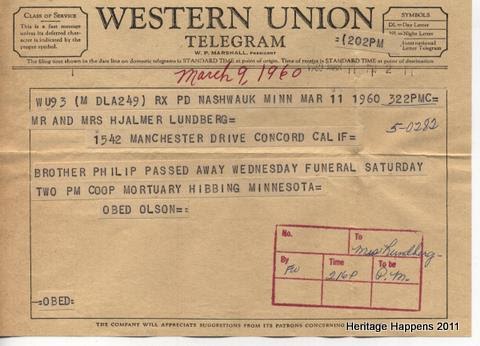 CLASS OF SERVICE
This is a fast message unless its deferred character is indicated by the proper symbol.
WESTERN UNION
TELEGRAM
W. P. MARSHALL, PRESIDENT
SYMBOLS
DL=Day Letter
NL=Night Letter
International Letter Telegram
=(202PM
The filing time shown in the date line on domestic telegrams is STANDARD TIME at point of origin. Time of receipt is STANDARD TIME at point of destination
March 9, 1960
WU93 (M DLA249) RX PD NASHWAUK MINN MAR 11 1960 322PMC=
MR AND MRS HJALMER LUNDBERG=
5-0282
1542 MANCHESTER DRIVE CONCORD CALIF=
BROTHER PHILIP PASSED AWAY WEDNESDAY FUNERAL SATURDAY
TWO PM COOP MORTUARY HIBBING MINNESOTA=
OBED OLSON=
No.
To
Mrs Lundberg
By
Time
216P
To be
P.M.
=OBED=
THE COMPANY WILL APPRECIATE SUGGESTIONS FROM ITS PATRONS CONCERNING
Heritage Happens 2011